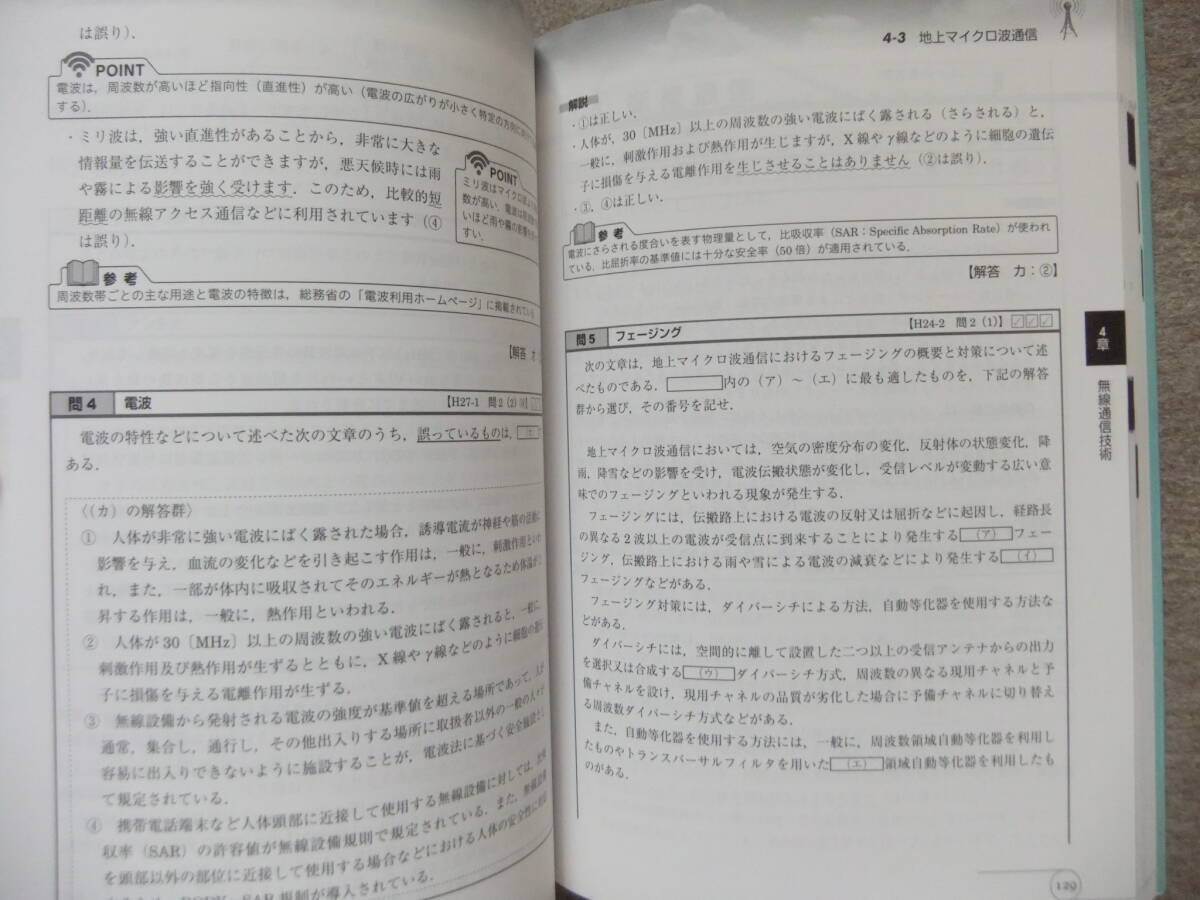 は誤り).
POINT
電波は,周波数が高いほど指向性(直進性)が高い(電波の広がりが小さく特定の方向に
する).
・ミリ波は,強い直進性があることから,非常に大きな
情報量を伝送することができますが,悪天候時には雨
や霧による影響を強く受けます.このため,比較的短
距離の無線アクセス通信などに利用されています(④
は誤り).
POINT
ミリ波はマイクロ波より
数が高い.電波は周波数
いほど雨や霧の影響を
すい.
参考
周波数帯ごとの主な用途と電波の特徴は,総務省の「電波利用ホームページ」に掲載されている
【解答 オ
問4 電波 【H27-1 問2(2)
電波の特性などについて述べた次の文章のうち,誤っているものは,
ある.
〈(カ)の解答群〉
① 人体が非常に強い電波にばく露された場合,誘導電流が神経や筋の活動に
影響を与え,血流の変化などを引き起こす作用は,一般に,刺激作用といわ
れ,また,一部が体内に吸収されてそのエネルギーが熱となるため体温が上
昇する作用は,一般に,熱作用といわれる.
② 人体が30〔MHz〕以上の周波数の強い電波にばく露されると,一般に,
刺激作用及び熱作用が生ずるとともに,X線やγ線などのように細胞の遺伝
子に損傷を与える電離作用が生ずる.
③ 無線設備から発射される電波の強度が基準値を超える場所であって,人が
通常,集合し,通行し,その他出入りする場所に取扱者以外の一般の人々が
容易に出入りできないように施設することが,電波法に基づく安全施設とし
て規定されている.
④ 携帯電話端末など人体頭部に近接して使用する無線設備に対しては,比吸
収率(SAR)の許容値が無線設備規則で規定されている.また,無線設備
を頭部以外の部位に近接して使用する場合などにおける人体の安全性に
SAR規制が導入されている.
4-3 地上マイクロ波通信
解説
・①は正しい.
・人体が,30〔MHz〕以上の周波数の強い電波にばく露される(さらされる)と,
一般に,刺激作用および熱作用が生じますが,X線やγ線などのように細胞の遺伝
子に損傷を与える電離作用を生じさせることはありません(②は誤り).
・③,④は正しい.
参考
電波にさらされる度合いを表す物理量として,比吸収率(SAR:Specific Absorption Rate)が使われ
ている.比屈折率の基準値には十分な安全率(50倍)が適用されている.
【解答 カ:②】
問5 フェージング 【H24-2 問2(1)】
次の文章は,地上マイクロ波通信におけるフェージングの概要と対策について述
べたものである. 内の(ア)~(エ)に最も適したものを,下記の解答
群から選び,その番号を記せ.
地上マイクロ波通信においては,空気の密度分布の変化,反射体の状態変化,降
雨,降雪などの影響を受け,電波伝搬状態が変化し,受信レベルが変動する広い意
味でのフェージングといわれる現象が発生する.
フェージングには,伝搬路上における電波の反射又は屈折などに起因し,経路長
の異なる2波以上の電波が受信点に到来することにより発生する (ア) フェー
ジング,伝搬路上における雨や雪による電波の減衰などにより発生する (イ)
フェージングなどがある.
フェージング対策には,ダイバーシチによる方法,自動等化器を使用する方法な
どがある.
ダイバーシチには,空間的に離して設置した二つ以上の受信アンテナからの出力
を選択又は合成する (ウ) ダイバーシチ方式,周波数の異なる現用チャネルと予
備チャネルを設け,現用チャネルの品質が劣化した場合に予備チャネルに切り替え
る周波数ダイバーシチ方式などがある.
また,自動等化器を使用する方法には,一般に,周波数領域自動等化器を利用し
たものやトランスバーサルフィルタを用いた (エ) 領域自動等化器を利用したも
のがある.
4章
無線通信技術
129